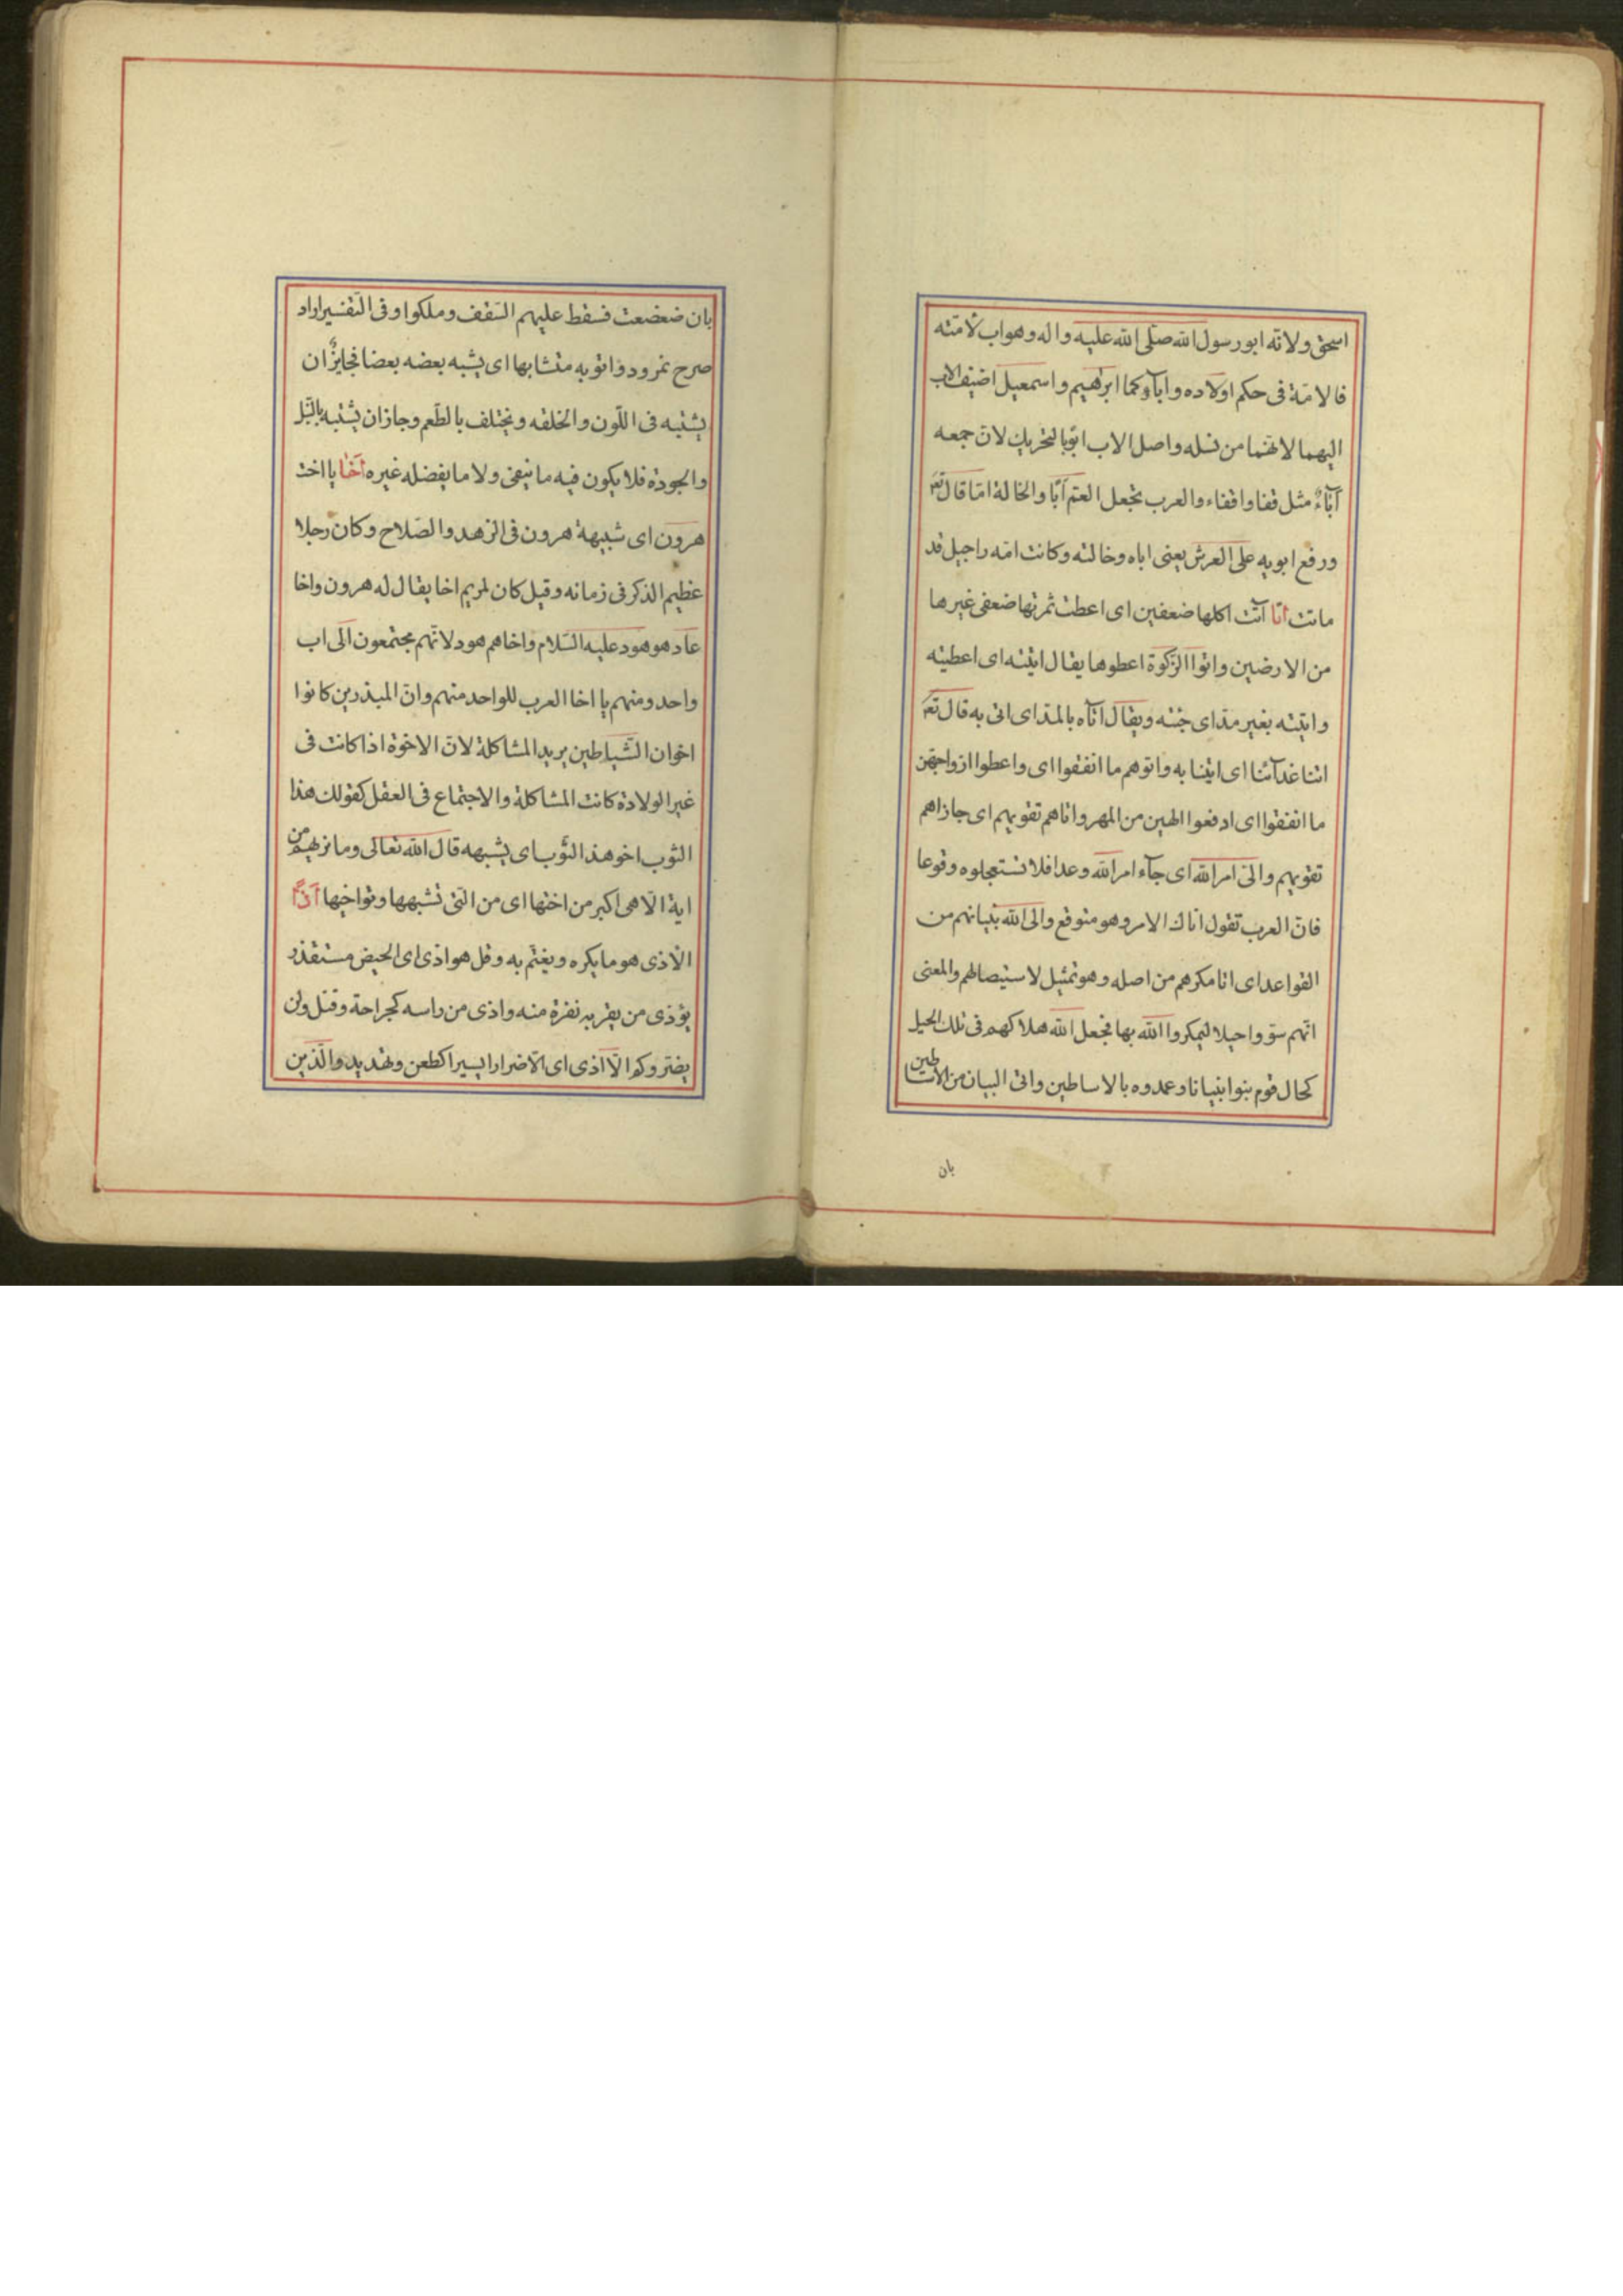 اسحق ولانه ابو رسول الله صلّى الله عليه واله وهو اب لامّته
فالامّة فى حكم اولاده واباؤكما ابرهيم واسمعيل اضيف الاب
اليهما لانهما من نسله واصل الاب ابوّ بالتحريك لانّ جمعه
آباءٌ مثل قفا واقفاء والعرب تجعل العم اَبًا والخالة امّا قال تعَ
ورفع ابويه على العرش يعنى اباه وخالته وكانت امّه راحيل قد
ماتت اتا آتت اكلها ضعفين اى اعطت ثمرتها ضعفى غيرها
من الارضين واتوا الزّكوة اعطوها يقال اتيته اى اعطيته
واتيته بغير مدّ اى جئته ويقال اتآه بالمدّ اى اتى به قال تعَ
اتنا غدآئنا اى ايتنا به واتوهم ما انفقوا اى واعطوا ازواجهنّ
ما انفقوا اى ادفعوا اليهن من المهر واتاهم تقويهم اى جازاهم
تقويهم واتى امر الله اى جآء امر الله وعدا فلا تستعجلوه وقوعا
فانّ العرب تقول اتاك الامر وهو متوقع واتى الله بنيانهم من
القواعد اى اتا مكرهم من اصله وهو تمثيل لاستيصالهم والمعنى
انّهم سوّوا حيلا ليمكروا الله بها فجعل الله هلاكهم فى تلك الحيل
كحال قوم بنوا بنيانا وعمدوه بالاساطين واتى البيان من الاساطين
بان
بان ضعضعت فسقط عليهم السّقف وهلكوا وفى التّفسير اراد
صرح نمرود واتو به متشابها اى يشبه بعضه بعضا فجايزٌ ان
يشتبه فى اللّون والخلقه ويختلف بالطّعم وجازان يشتبه بالنّبل
والجودة فلا يكون فيه ما ينفى ولا ما يفضله غيره اَخَا يا اخت
هرون اى شبيهة هرون فى الزهد والصّلاح وكان رجلا
عظيم الذكر فى زمانه وقيل كان لمريم اخا يقال له هرون واخا
عاد هو هود عليه السّلام واخاهم هود لانّهم مجتمعون الى اب
واحد ومنهم يا اخا العرب للواحد منهم وانّ المبذرين كانوا
اخوان الشّياطين يريد المشاكلة لانّ الاخوة اذا كانت فى
غير الولادة كانت المشاكلة والاجتماع فى العقل كقولك هذا
الثوب اخو هذ الثّوب اى يشبهه قال الله تعالى وما نريهم من
اية الّا هى اكبر من اختها اى من الّتى تشبهها وتواخيها اَذًا
الاذى هو ما يكره ويغتم به وقل هو اذى اى الحيض مستقذر
يؤذى من يقربه نفرة منه واذى من راسه كجراحة وقتل ولن
يضرّوكم الّا اذى اى الّا ضرارا يسيرا كطعن وتهديد والّذين